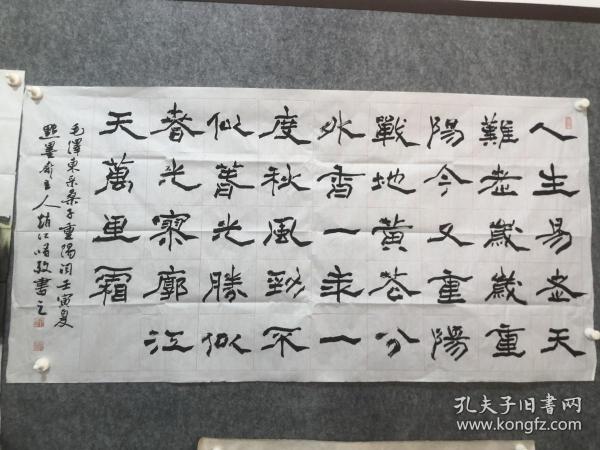 人生易老天
難老歲歲重
陽今又重陽
戰地黃花分
外香一年一
度秋風勁不
似春光勝似
春光寥廓江
天萬里霜
毛澤東采桑子重陽詞壬寅夏
點墨斋主人趙江敬書之
孔夫子旧書网